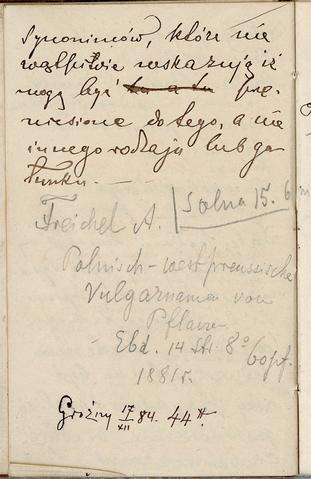 Synonimów, które nie
wątpliwie wskazują iż
mogą być tu a tu prze-
niesione do tego, a nie
innego rodzaju lub ga-
tunku. —
Treichel A. | Solna 15. 6 m
Polnisch-westpreussische
Vulgarnamen von
Pflanz-
Ebd. 14 Str. 8° 60 pf.
1881 r.
Groźny 17/XII 84.